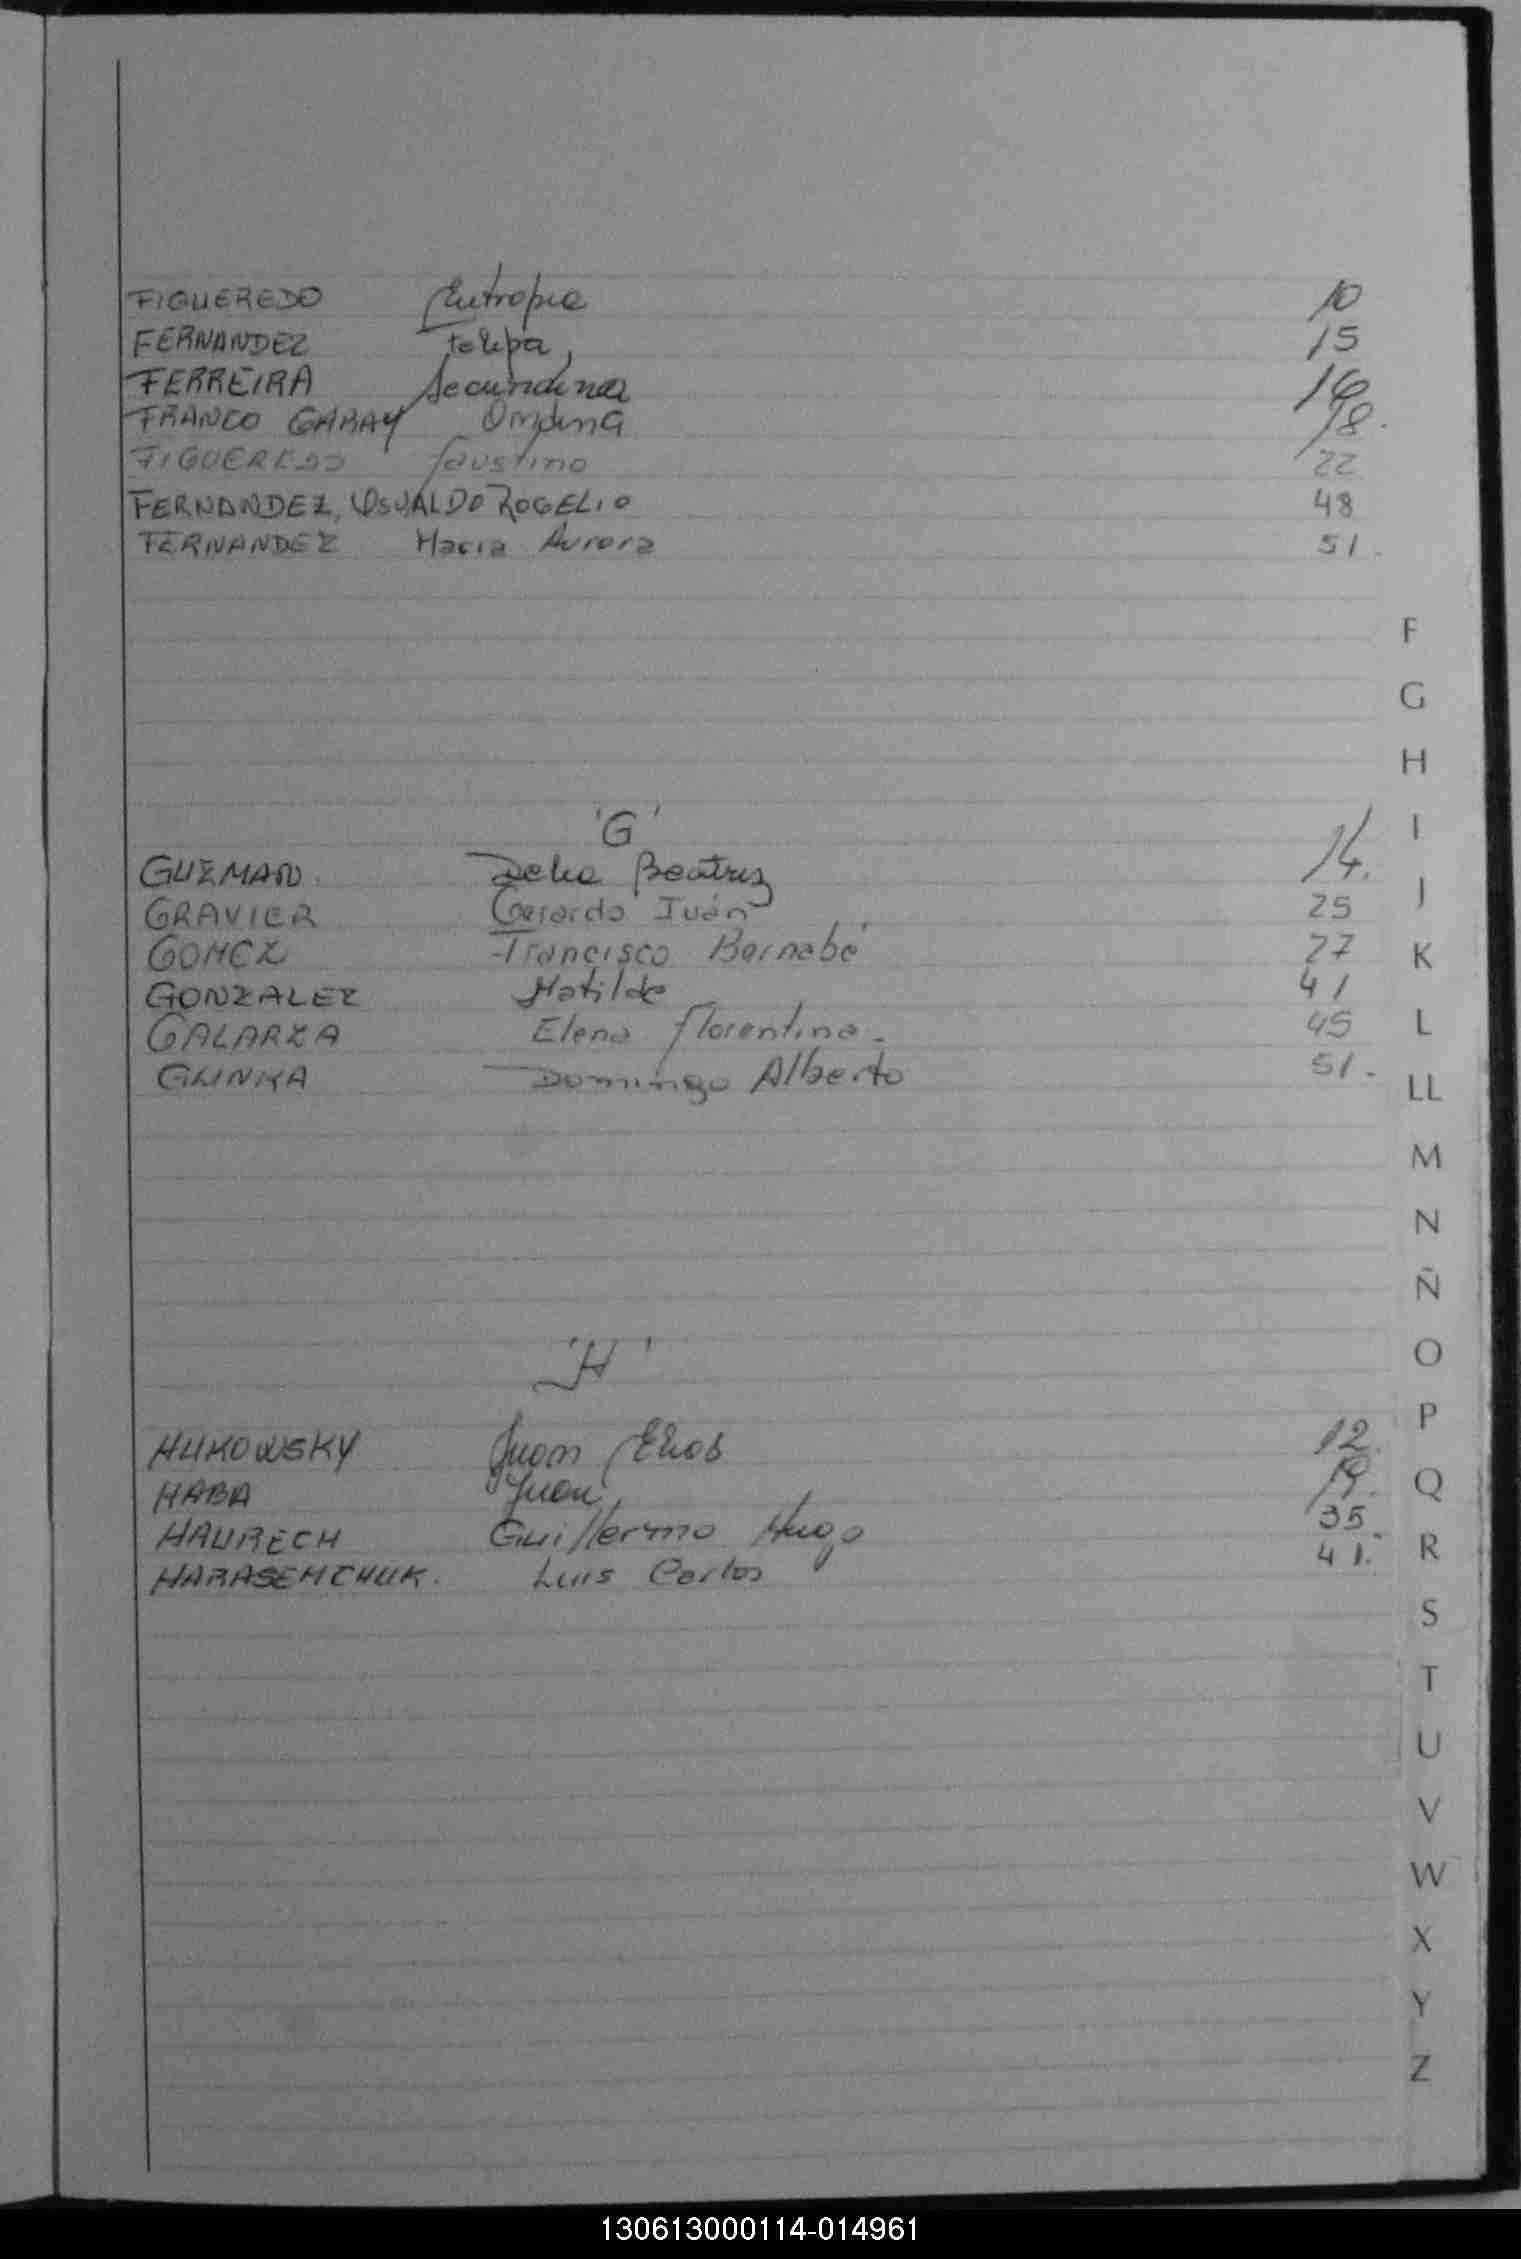 FIGUEREDO Eutropia 10
FERNANDEZ 15
FERREIRA Secundina 16
FRANCO GARAY Ondina 18.
FIGUEREDO Faustino 22
FERNANDEZ, OSVALDO ROGELIO 48
FERNANDEZ Maria Aurora 51.
'G'
GUZMAN. Delia Beatriz 14.
GRAVIER Gerardo Iván 25
GOMEZ Francisco Bernabé 27
GONZALEZ Matilde 41
GALARZA Elena Florentina. 45
GLINKA Domingo Alberto 51.
'H'
HUKOWSKY Juan Elias 12.
HABA Juan 19.
HAURECH Guillermo Hugo 35.
HARASEMCHUK. Luis Carlos 41.
F
G
H
I
J
K
L
LL
M
N
Ñ
O
P
Q
R
S
T
U
V
W
X
Y
Z
130613000114-014961